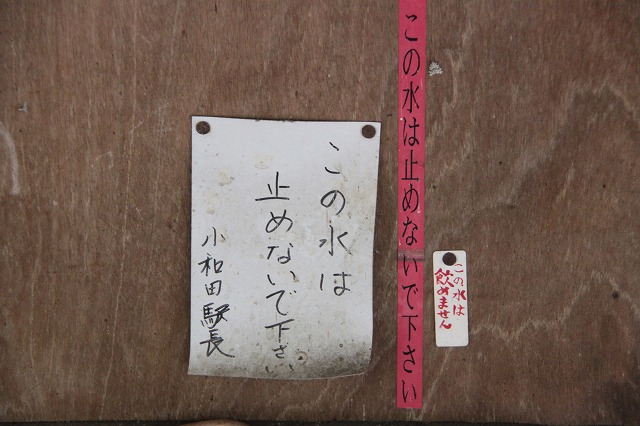 この水は止めないで下さい
この水は
飲めません
この水は
止めないで下さい
小和田駅長